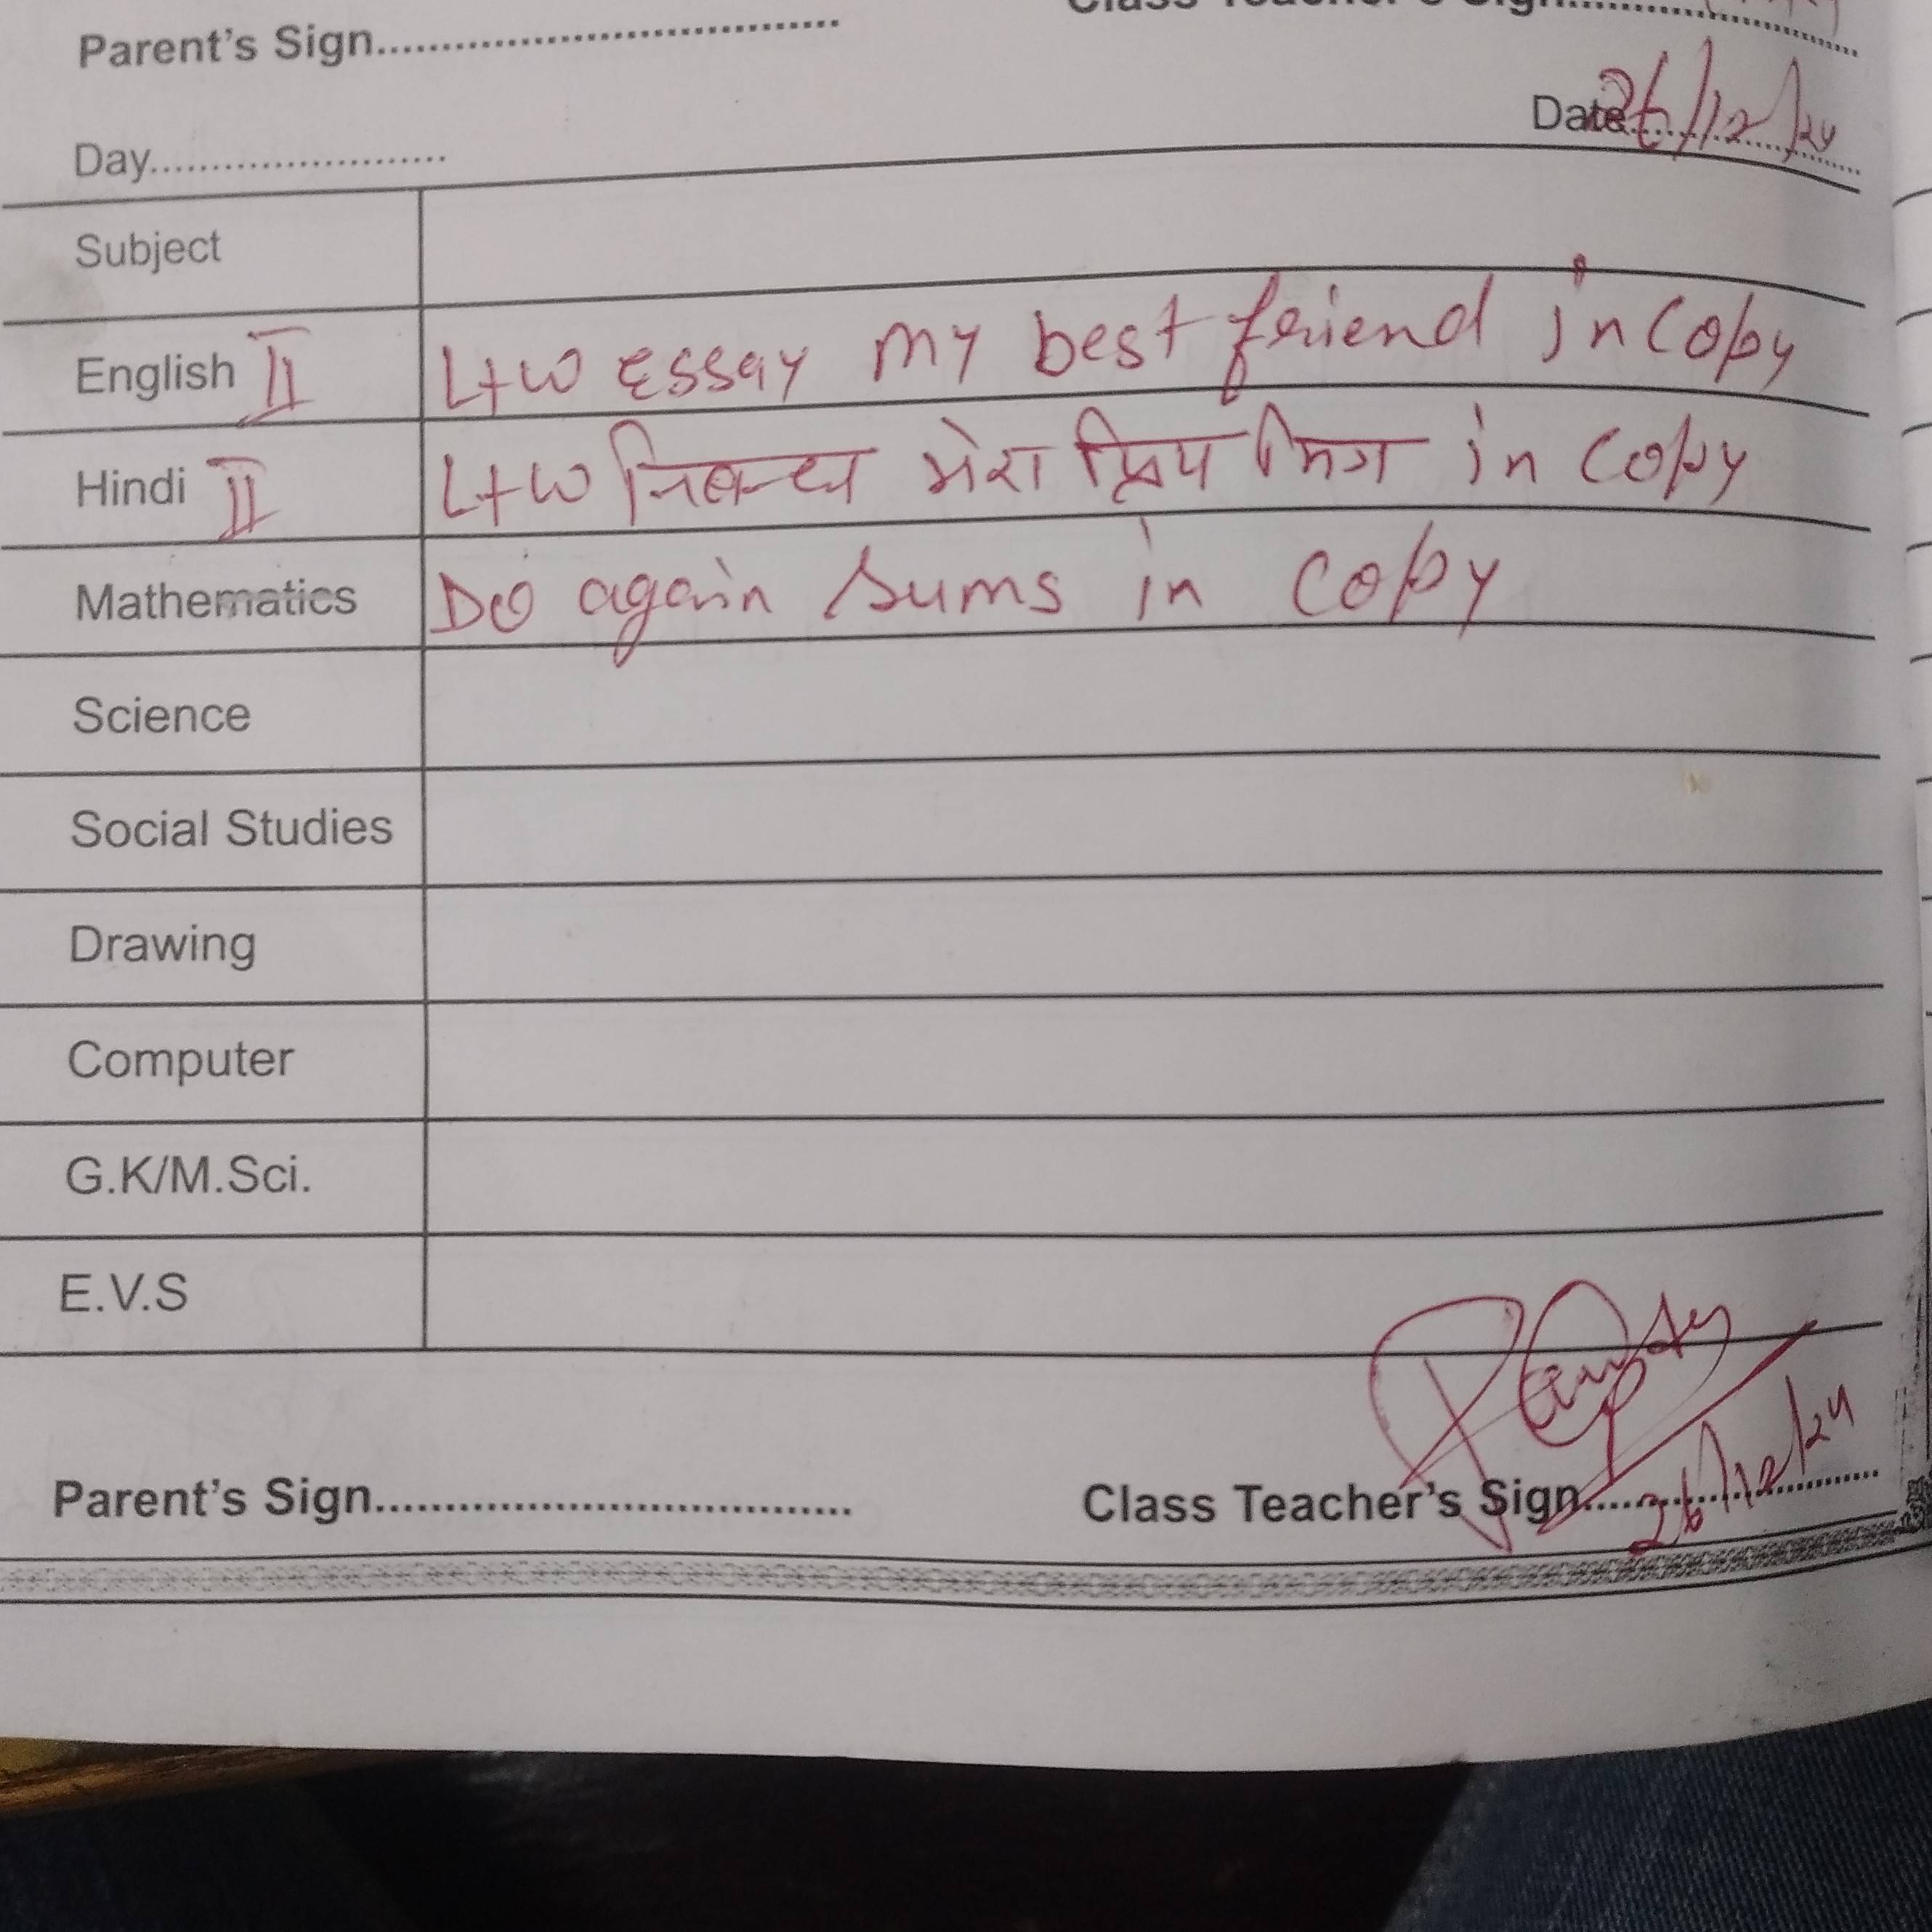 Parent's Sign.............................. Class Teacher's Sign..............
Day.................... Date 26/12/24
Subject
English II L+W Essay My best friend in Copy
Hindi II L+W निबन्ध मेरा प्रिय मित्र in Copy
Mathematics Do again sums in Copy
Science
Social Studies
Drawing
Computer
G.K/M.Sci.
E.V.S
Parent's Sign.............................. Class Teacher's Sign..............
26/12/24